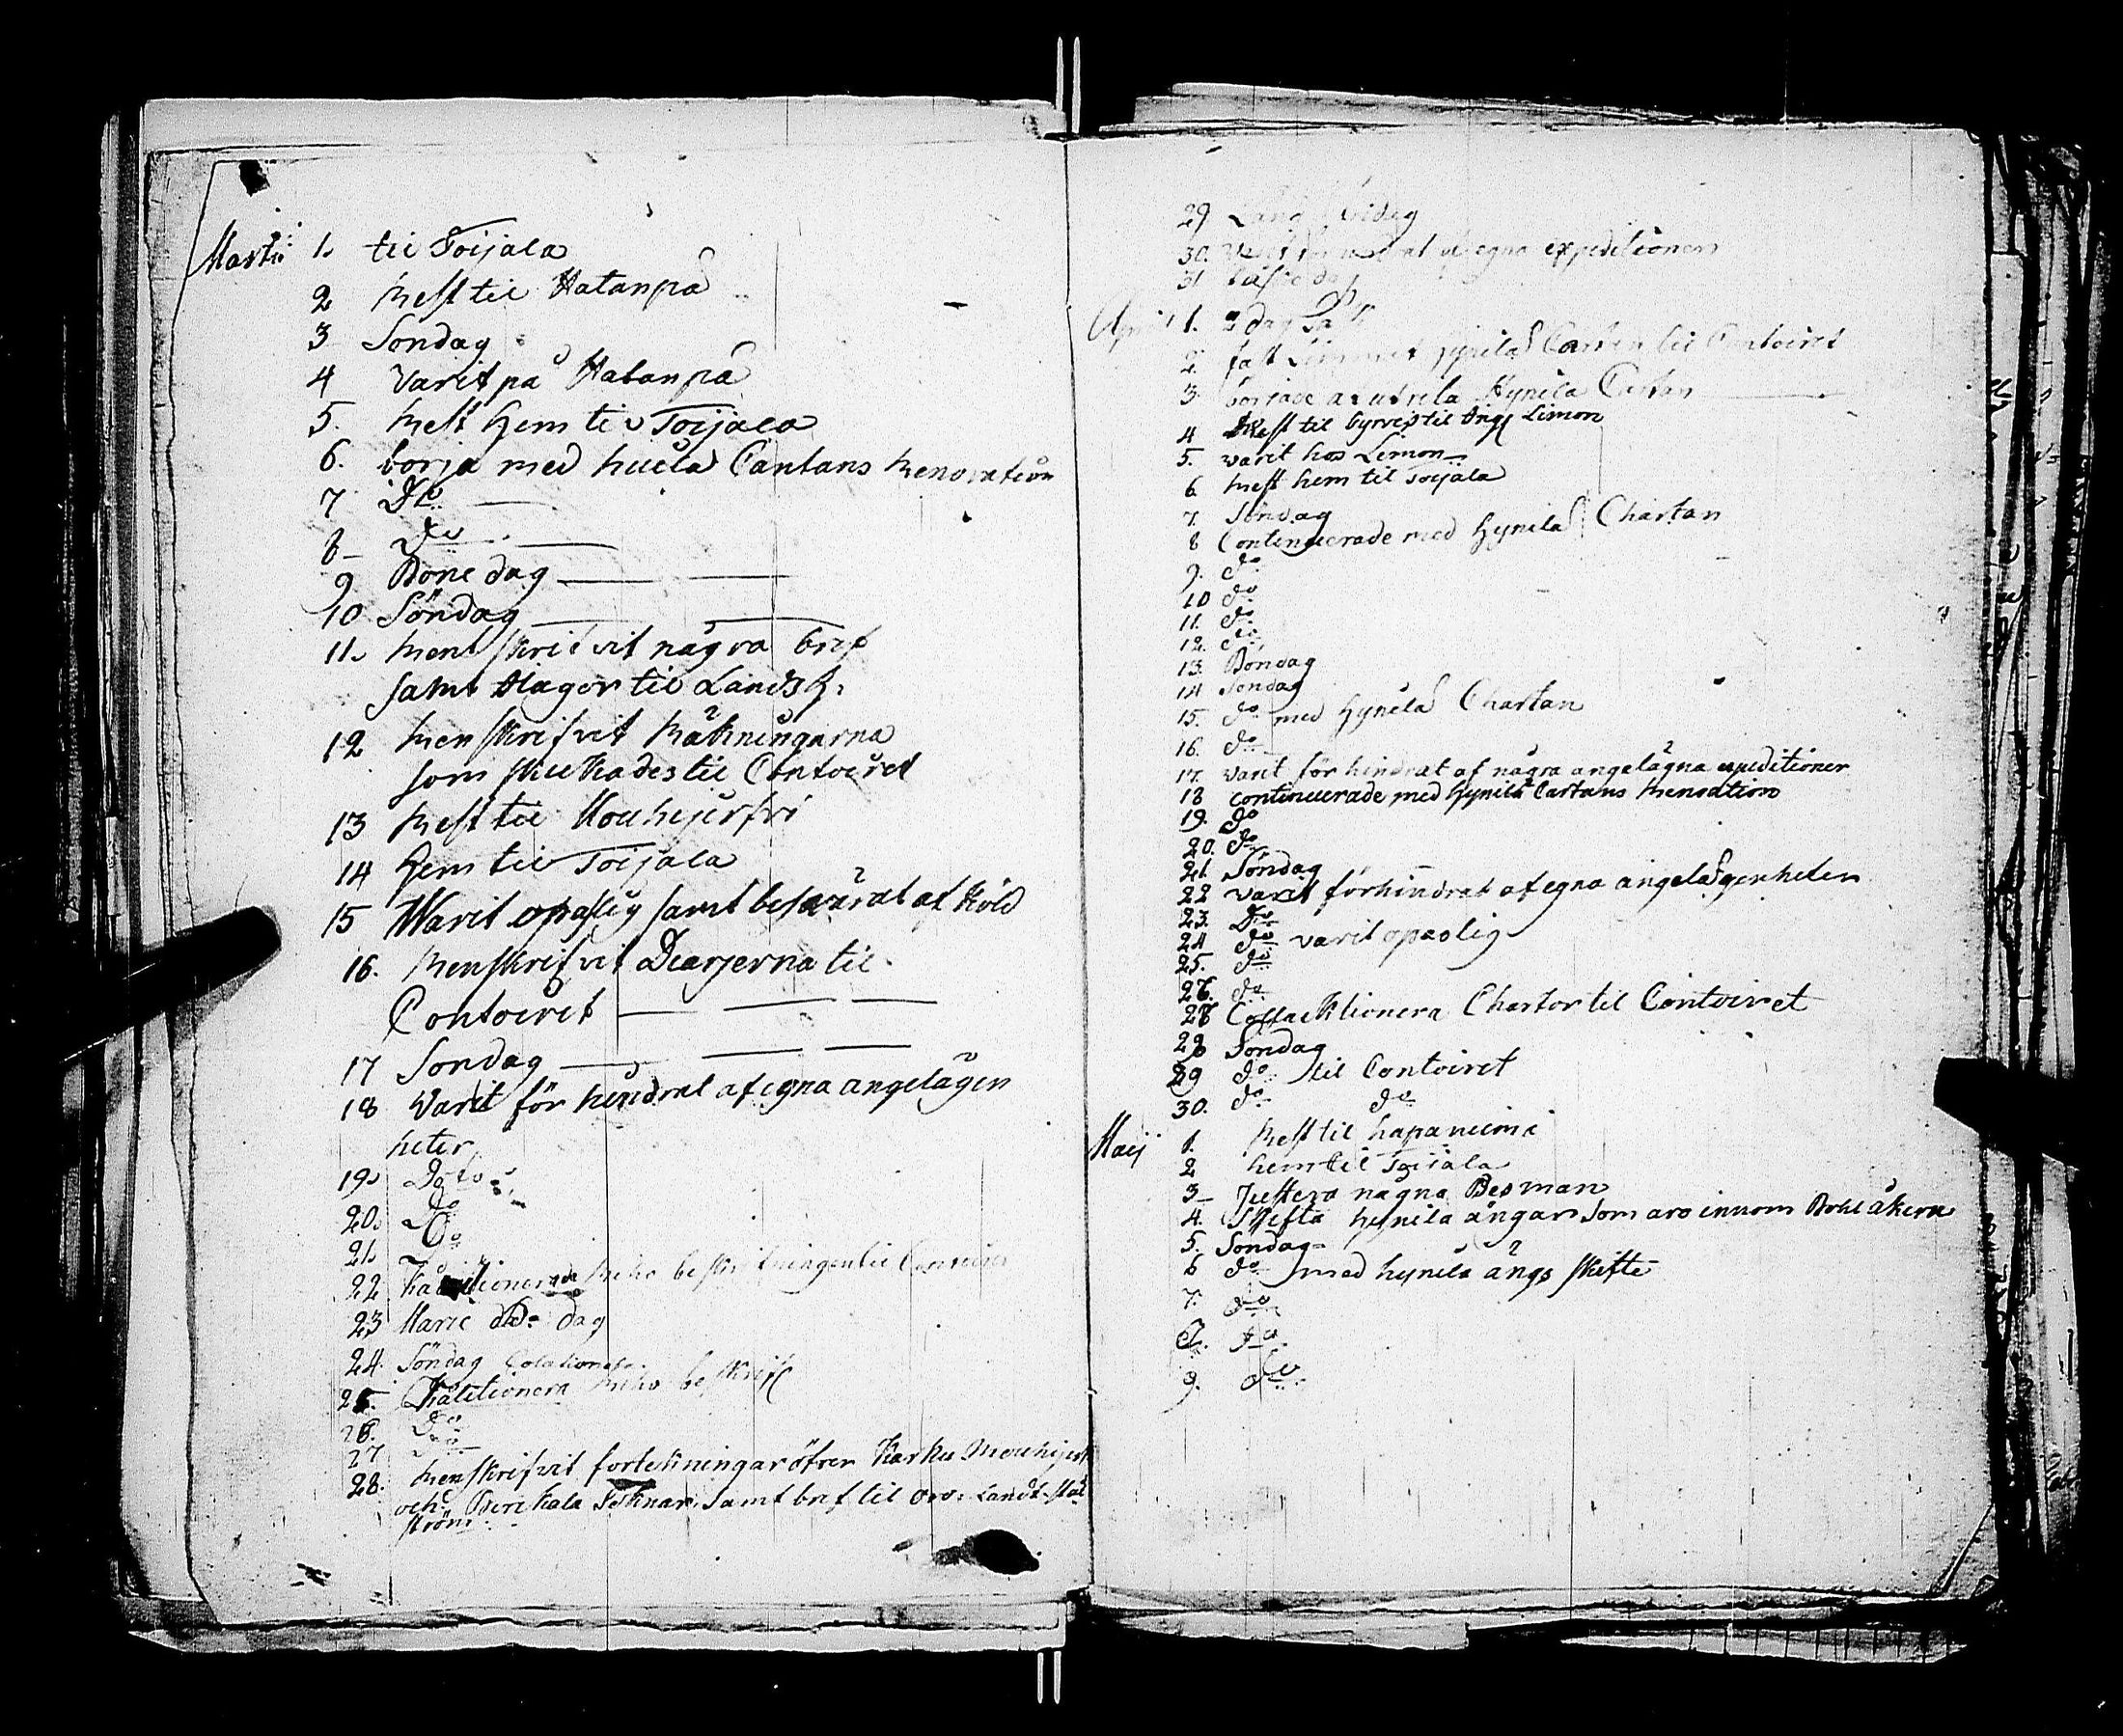 Martii 1. til Toijala
2 Rest til Hatanpä
3 Söndag
4 Varit på Hatanpä
5. Rest hem til Toijala
6. börja med huila Cartans Renovation
7 Do
8 Do
9 Böne dag
10 Söndag
11. Renskrifvit några bref
samt till Landsh:
12 Renskrifvit Räkningarna
som skickades til Contoiret
13 Rest til Mouhijerfvi
14 Hem til Toijala
15 Warit opaslig samt besvärat af Köld
16. Renskrifvit Diarjerna til
Contoiret
17 Söndag
18 Varit för hindrat af egna angelägen
heter
19. Dito
20. Do
21. Do
22 beskrifningen til Contoiret
23 Marie dag
24. Söndag
25. beskrif
26. Do
27 Do
28. Renskrifvit förtekningar öfver Karku Mouhijerf
och Birckala Soknar, samt bref til Landt
ström
29 Lång fridag
30. egna expeditioner
31 Påskedag
April 1. 2 dag Påsk
2. Hynilä Cartan til Contoiret
3. började Hynilä Cartan
4 Rest til til Limon
5. varit hos Limon
6. Rest hem til Toijala
7. Söndag
8 Continuerade med Hynilä Chartan
9. do
10 do
11. do
12. do
13. Böndag
14 Söndag
15. do med Hynilä Chartan
16. do
17. Varit för hindrat af några angelägna expeditioner
18 continuerade med Hynilä Cartans Renovation
19. do
20. do
21 Söndag
22 varit förhindrat af egna angelägenheter
23. Do
24 do varit opaslig
25. do
26. do
27 Chartor til Contoiret
28 Söndag
29 do til Contoiret
30. do do
Maij 1. Rest til hapaniemi
2 hem til Toijala
3 Justera några Besman
4. Skifta hynilä ängar som äro innom åkern
5. Söndag
6 do med hynilä ängs skifte
7. do
8. do
9. do